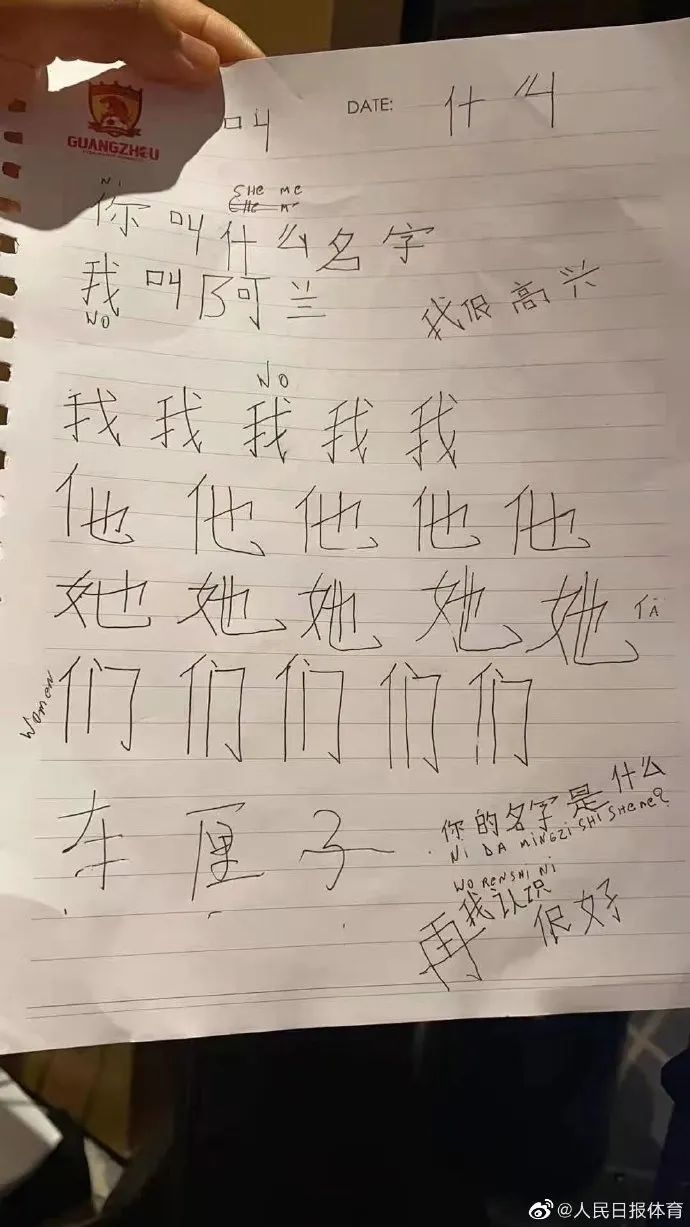 GUANGZHOU
叫 DATE: 什么
NI SHE ME
CHE M
你叫什么名字
我叫阿兰
WO
我很高兴
WO
我我我我我
他他他他他
她她她她她 TA
WOMEN
们们们们们
车厘子
你的名字是什么
NI DA MINGZI SHI SHEME?
WO RENSHI NI
我认识
再 很好
@人民日报体育